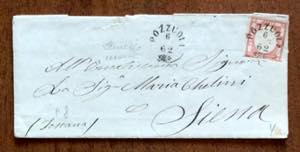 POZZUOLI
6
62
POZZUOLI
6
62
All'
Signora
La Sig.ra Maria Chelini
Siena
(Toscana)